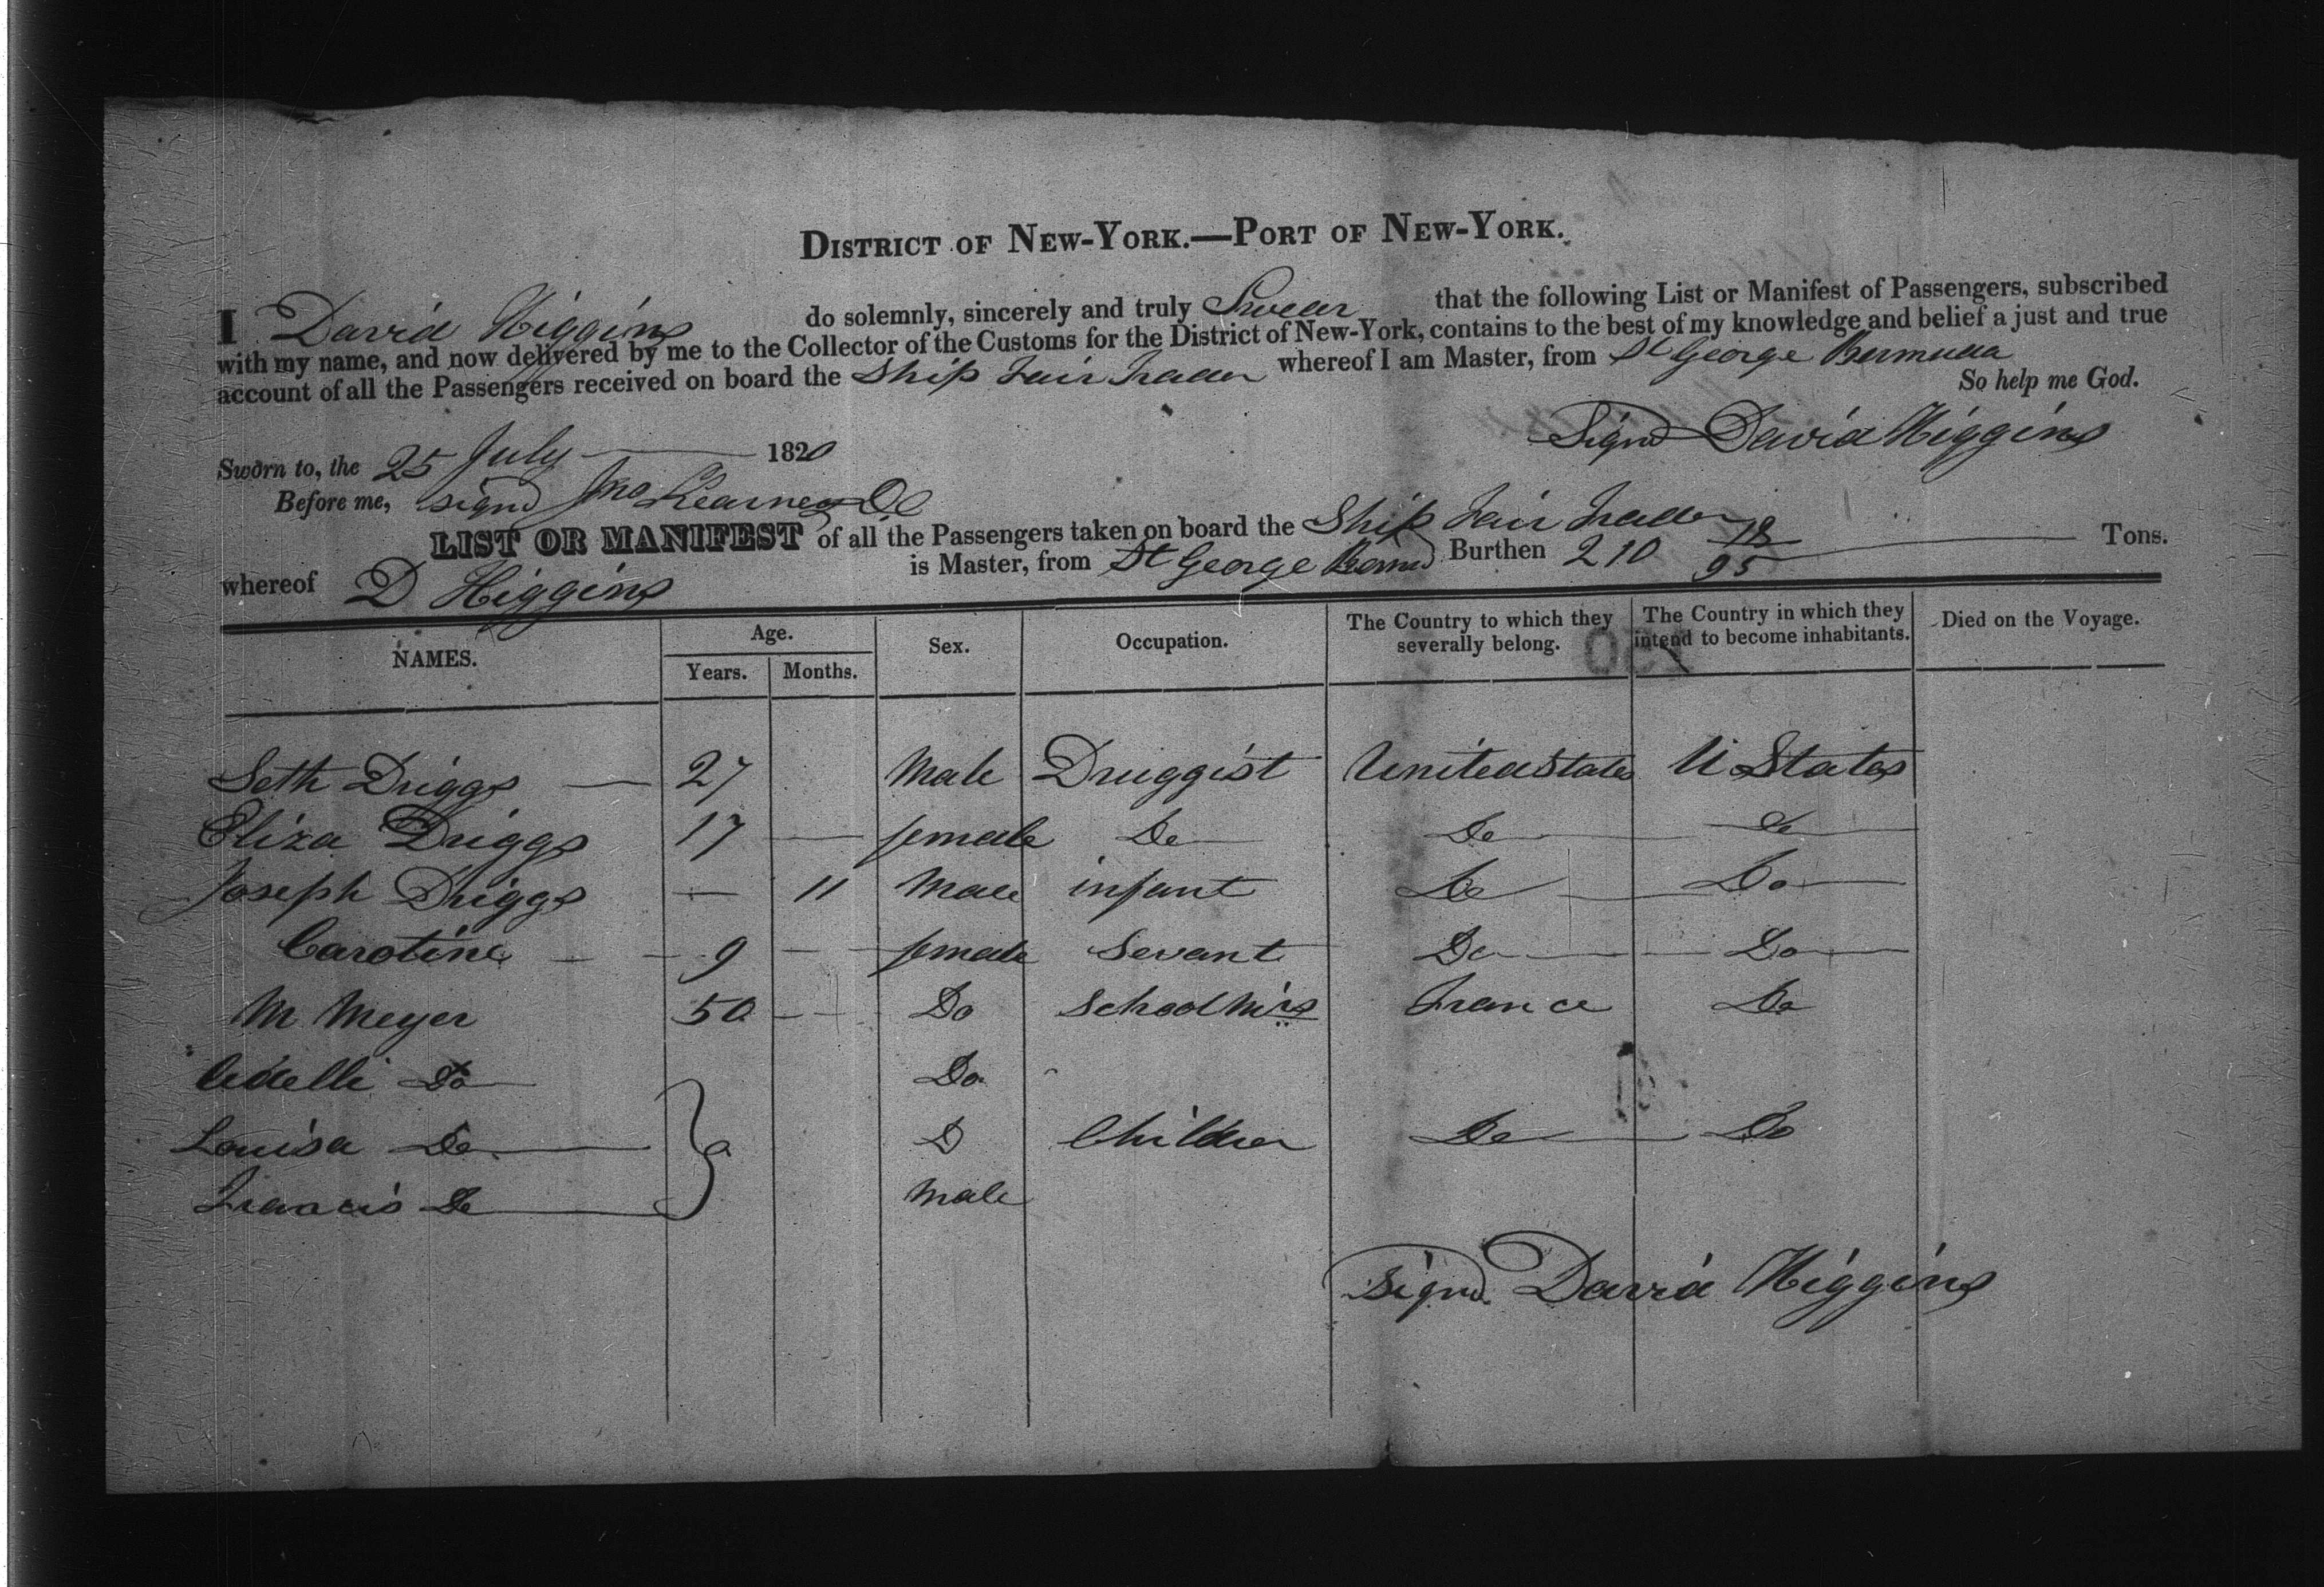 DISTRICT OF NEW-YORK.—PORT OF NEW-YORK.
I David Higgins do solemnly, sincerely and truly Swear that the following List or Manifest of Passengers, subscribed
with my name, and now delivered by me to the Collector of the Customs for the District of New-York, contains to the best of my knowledge and belief a just and true
account of all the Passengers received on board the Ship Fair Trader whereof I am Master, from St George Bermuda
So help me God.
Sworn to, the 25 July 1820
Signd David Higgins
Before me, signd Jno Kearney
LIST OR MANIFEST of all the Passengers taken on board the Ship Fair Trader
whereof D Higgins is Master, from St George Bermd Burthen 210 78/95 Tons.
NAMES. Age. Sex. Occupation. The Country to which they severally belong. The Country in which they intend to become inhabitants. Died on the Voyage.
Years. Months.
Seth Driggs — 27 Male Druggist United States U States
Eliza Driggs 17 — female Do Do Do
Joseph Driggs — 11 Male infant Do Do
Caroline — 9 — female Servant Do Do
M Meyer 50 — Do School Mirs France Do
Adelle Do Do
Louisa Do D Children Do Do
Francis Do Male
Signd David Higgins